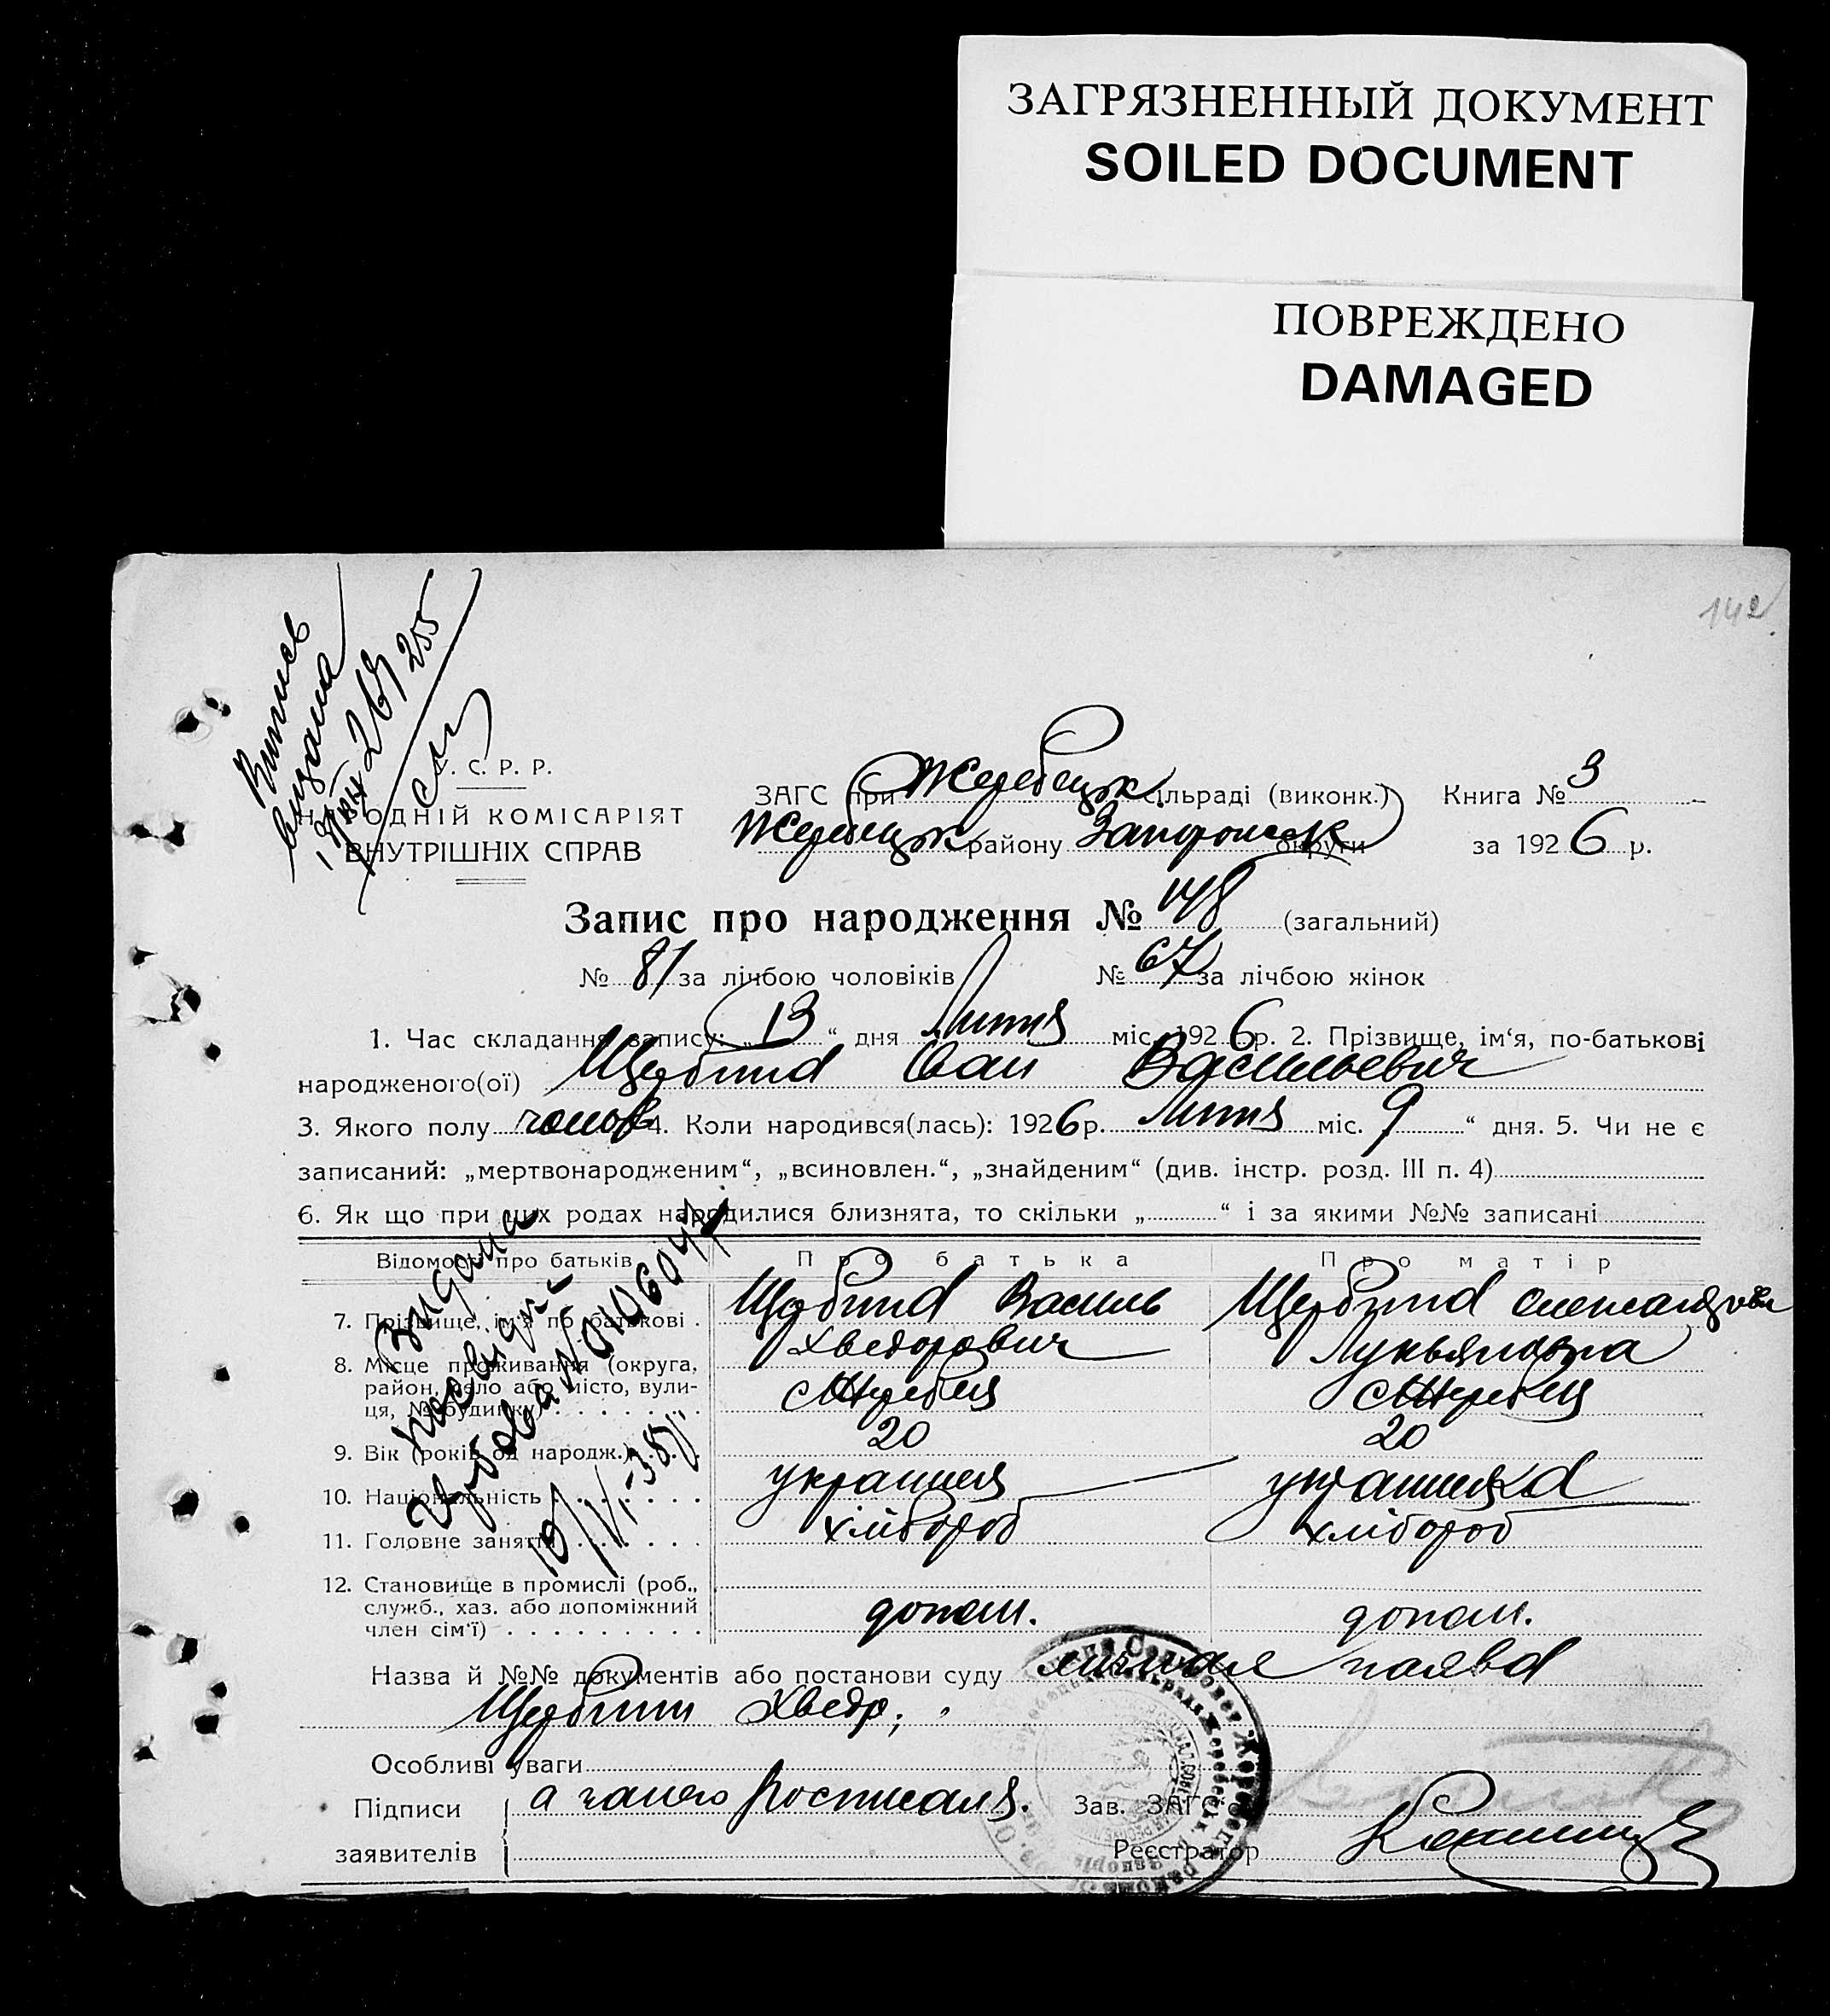 ЗАГРЯЗНЕННЫЙ ДОКУМЕНТ
SOILED DOCUMENT
ПОВРЕЖДЕНО
DAMAGED
142
Випись
видана
С. Р. Р.
ЗАГС при Жеребецьк сільраді (виконк.) Книга № 3
НАРОДНІЙ КОМІСАРІЯТ
Жеребецьк району Запорожск округи за 1926 р.
ВНУТРІШНІХ СПРАВ
Запис про народження № 148 (загальний)
№ 81 за лічбою чоловіків № 67 за лічбою жінок
1. Час складання запису: „13“ дня Литня міс. 1926 р. 2. Прізвище, ім‘я, по-батькові
народженого(ої) Щербина Іван Васильевич
3. Якого полу чолов 4. Коли народився(лась): 1926 р. Литня міс. 9 “ дня. 5. Чи не є
записаний: „мертвонародженим“, „всиновлен.“, „знайденим“ (див. інстр. розд. III п. 4)
6. Як що при цих родах народилися близнята, то скільки „ “ і за якими №№ записані
Відомості про батьків Про батька Про матір
7. Прізвище, ім‘я по батькові . Щербина Василь Хведорович Щербина Олександра Лукьяновна
8. Місце проживання (округа, район, село або місто, вулиця, № будинку) с Жеребця с Жеребця
9. Вік (років од народж.) 20 20
10. Національність украинец украинка
11. Головне заняття хлібороб хлібороб
12. Становище в промислі (роб., служб., хаз. або допоміжний член сім‘ї) допом. допом.
Видана
10/VI-38р.
Назва й №№ документів або постанови суду личная заява
Щербини Хведр;
Особливі уваги
Підписи а нього Росписался. Зав. ЗАГС
заявителів Реєстратор